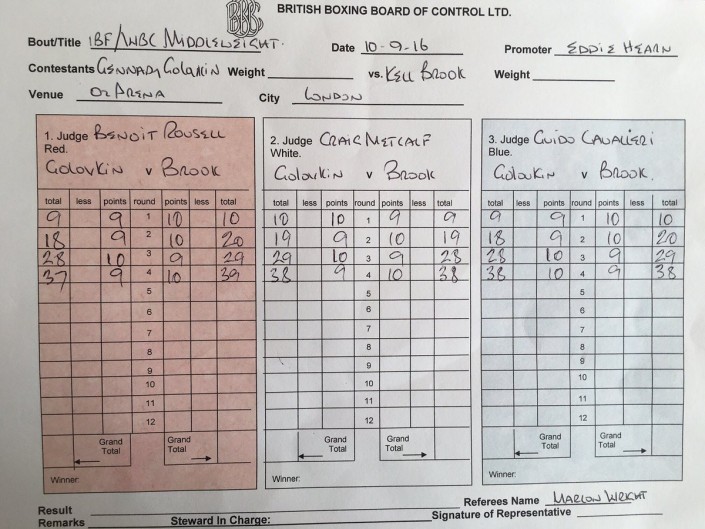 BBBC
BRITISH BOXING BOARD OF CONTROL LTD.
Bout/Title IBF/WBC MIDDLEWEIGHT. Date 10-9-16 Promoter EDDIE HEARN
Contestants GENNADY Golovkin Weight vs. KELL BROOK Weight
Venue O2 ARENA City LONDON
1. Judge BENOIT ROUSELL
Red.
GOLOVKIN v BROOK
total less points round points less total
9 9 1 10 10
18 9 2 10 20
28 10 3 9 29
37 9 4 10 39
5
6
7
8
9
10
11
12
Grand Total Grand Total
Winner:
2. Judge CRAIG METCALF
White.
GOLOVKIN v BROOK
total less points round points less total
10 10 1 9 9
19 9 2 10 19
29 10 3 9 28
38 9 4 10 38
5
6
7
8
9
10
11
12
Grand Total Grand Total
Winner:
3. Judge GUIDO CAVALIERI
Blue.
GOLOVKIN v BROOK.
total less points round points less total
9 9 1 10 10
18 9 2 10 20
28 10 3 9 29
38 10 4 9 38
5
6
7
8
9
10
11
12
Grand Total Grand Total
Winner:
Result Referees Name MARLON WRIGHT
Remarks Steward In Charge: Signature of Representative